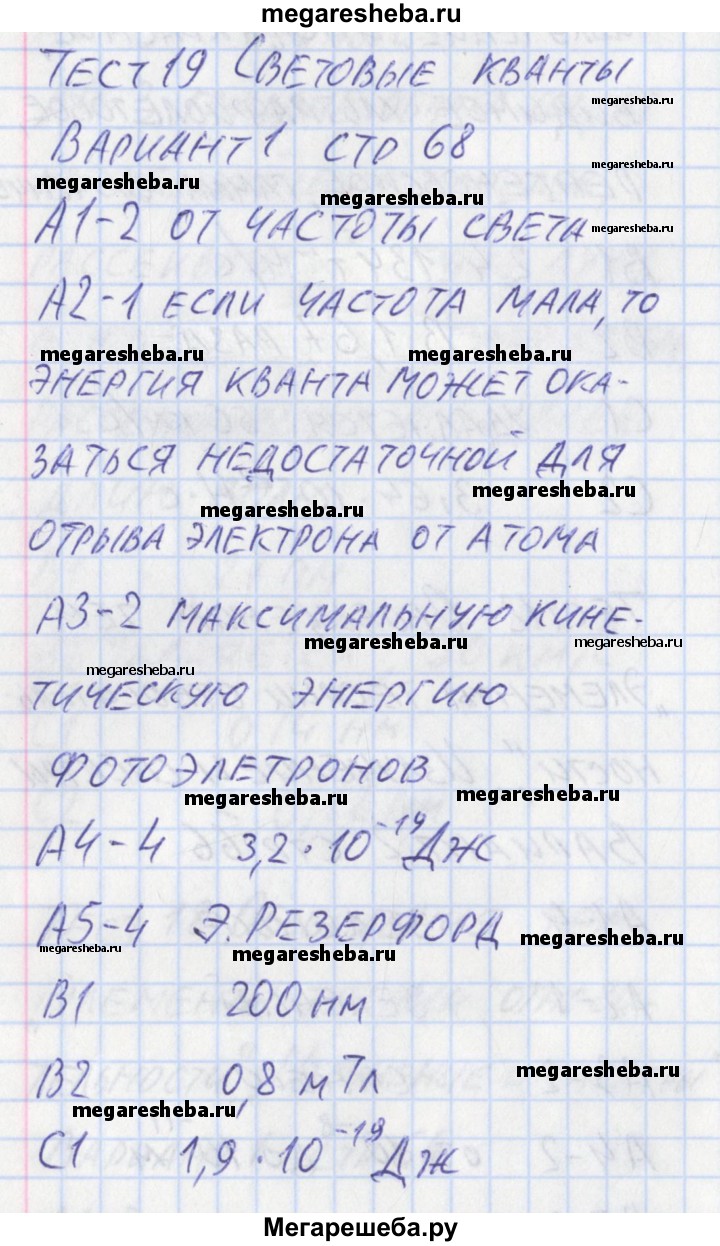 megaresheba.ru
Тест 19 Световые кванты
megaresheba.ru
Вариант 1 стр 68
megaresheba.ru
megaresheba.ru
megaresheba.ru
А1-2 от частоты света
megaresheba.ru
А2-1 если частота мала, то
megaresheba.ru megaresheba.ru
энергия кванта может ока-
заться недостаточной для
megaresheba.ru
megaresheba.ru
отрыва электрона от атома
А3-2 максимальную кине-
megaresheba.ru megaresheba.ru
megaresheba.ru
тическую энергию
фотоэлетронов
megaresheba.ru megaresheba.ru
А4-4 3,2·10⁻¹⁹ Дж
А5-4 Э. Резерфорд
megaresheba.ru
megaresheba.ru
megaresheba.ru
В1 200 нм
В2 0,8 мТл
megaresheba.ru
megaresheba.ru
С1 1,9·10⁻¹⁹ Дж
Мегарешеба.ру